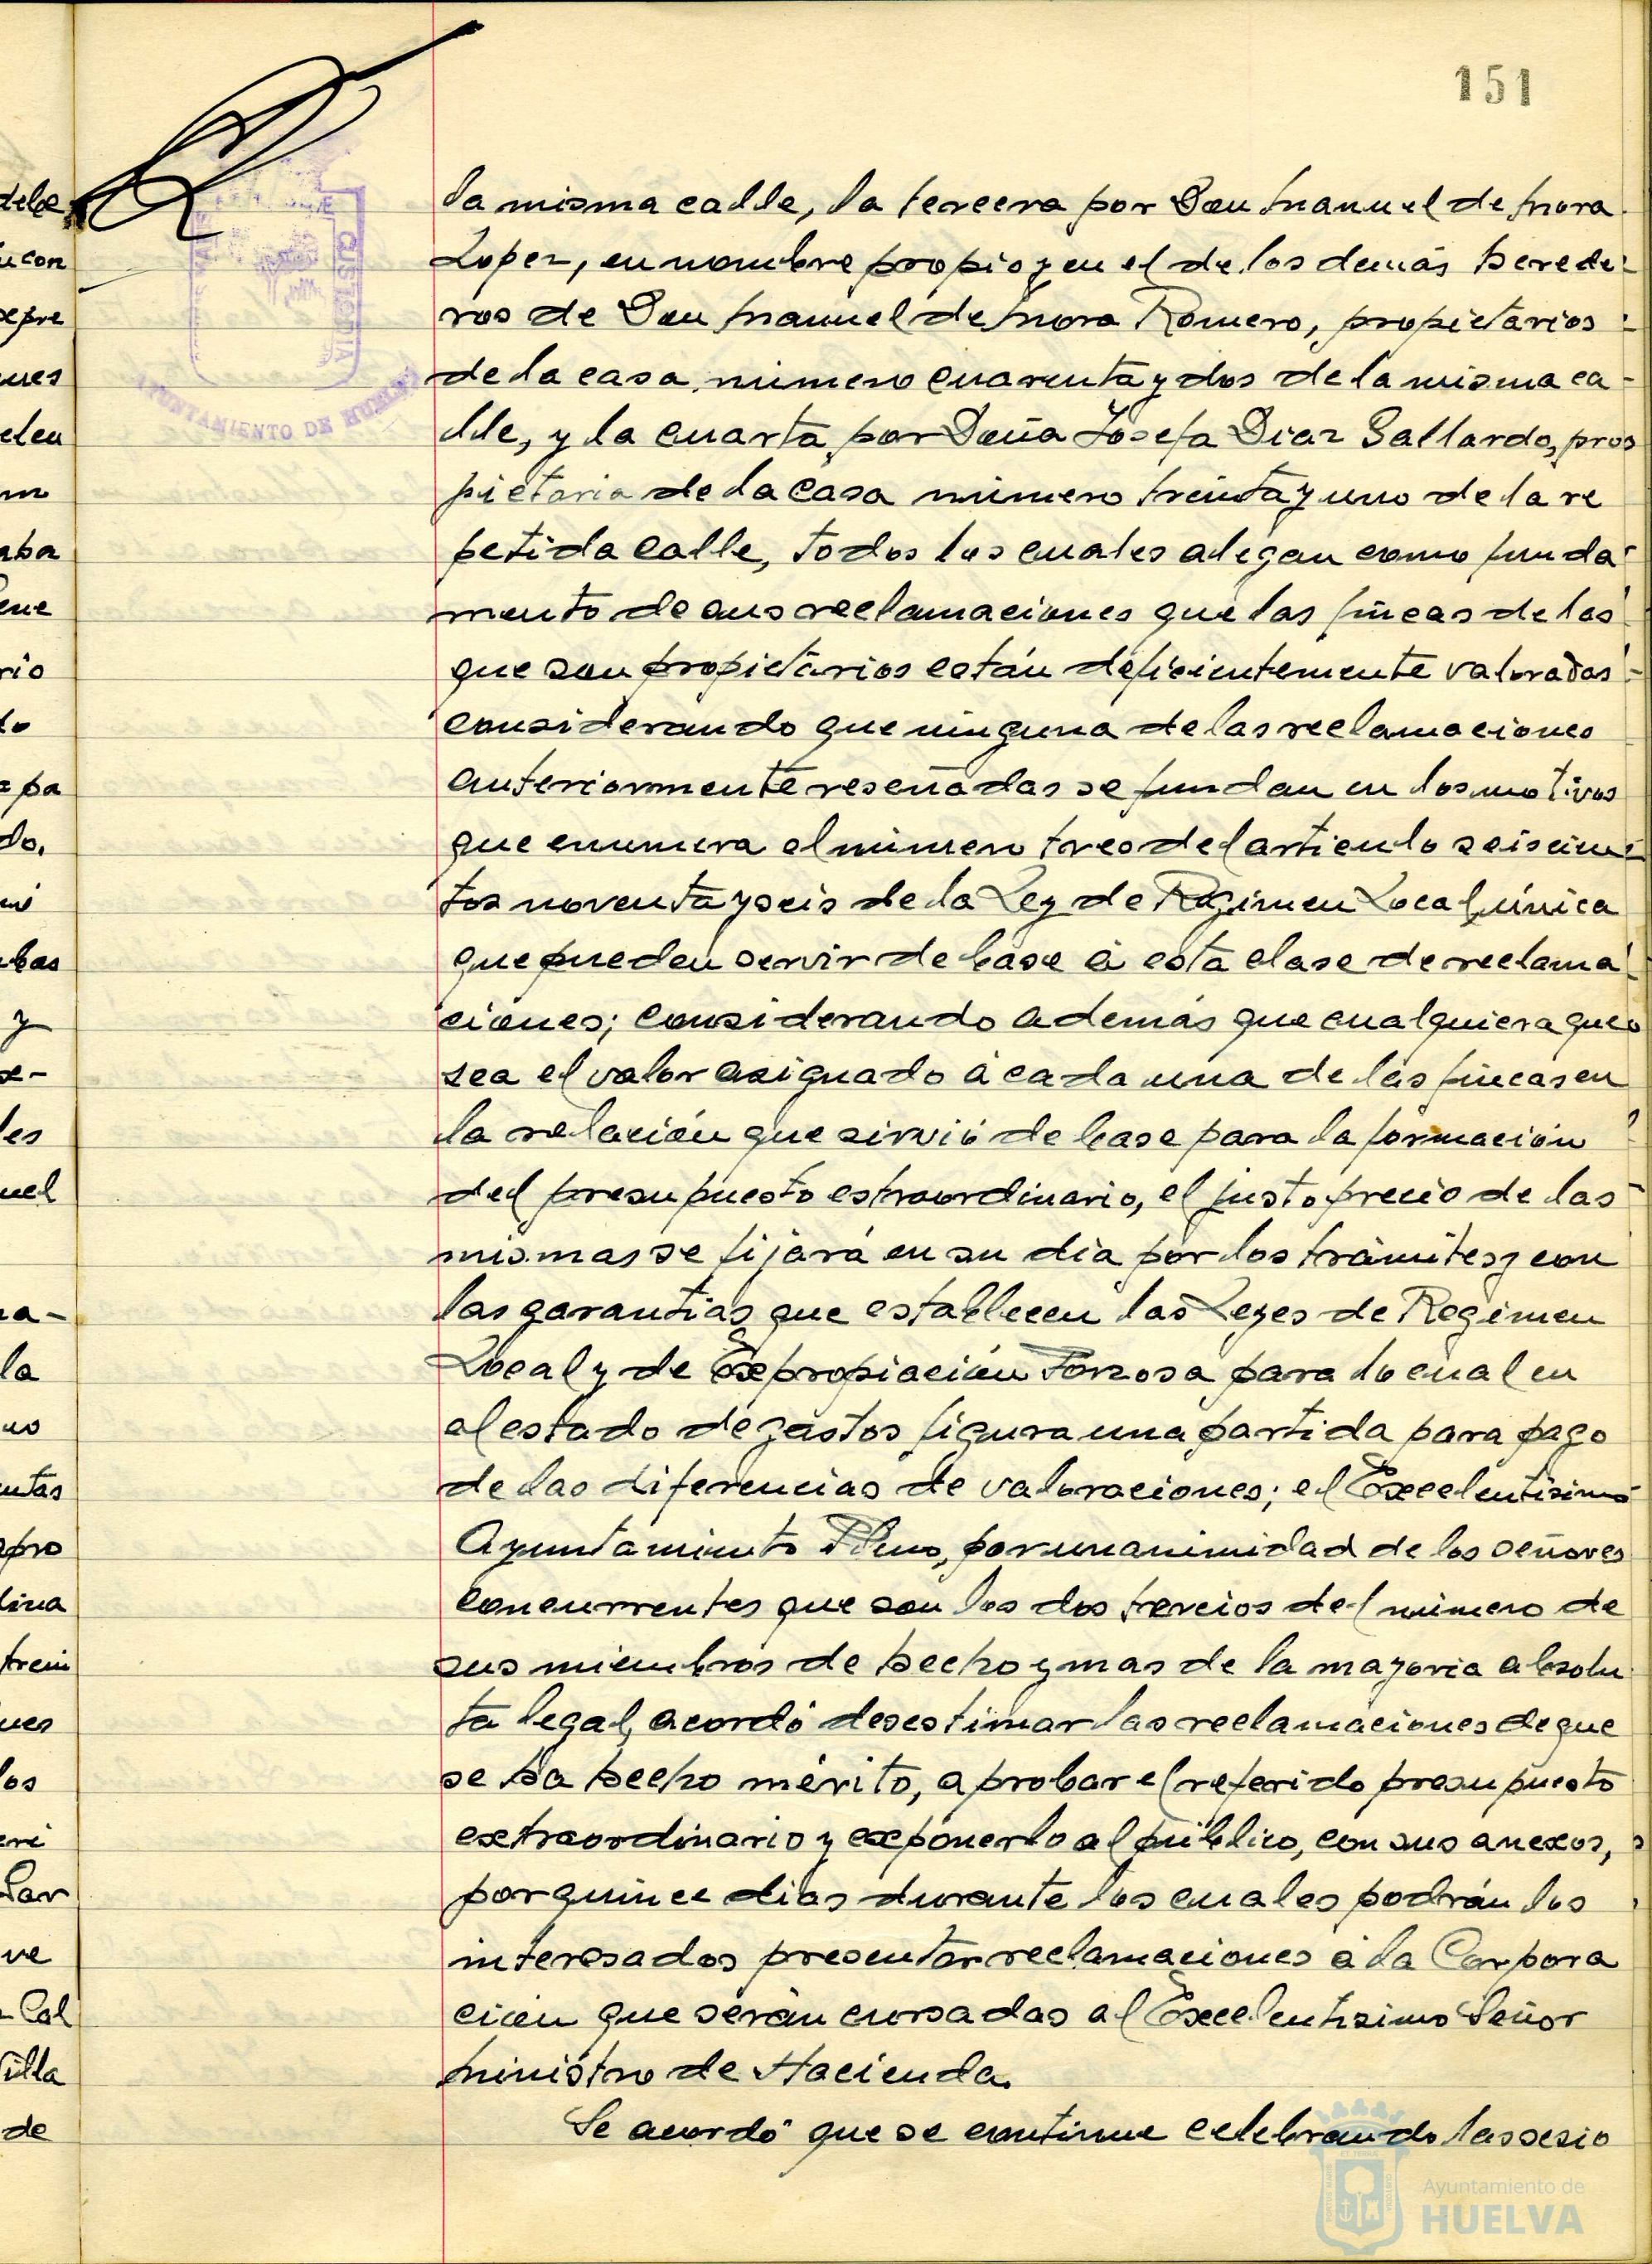 151
la misma calle, la tercera por Don Manuel de Mora
Lopez, en nombre propio y en el de los demás herede-
ros de Don Manuel de Mora Romero, propietarios
de la casa número cuarenta y dos de la misma ca-
lle, y la cuarta por Doña Josefa Diaz Gallardo, pro-
pietaria de la casa número treinta y uno de la re
petida calle, todos los cuales alegan como funda-
mento de sus reclamaciones que las fincas de las
que son propietarios están deficientemente valoradas-
considerando que ninguna de las reclamaciones
anteriormente reseñadas se fundan en los motivos
que enumera el número tres del artículo seiscien-
tos noventa y seis de la Ley de Régimen Local única
que pueden servir de base á esta clase de reclama-
ciones; considerando además que cualquiera que
sea el valor asignado á cada una de las fincas en
la relación que sirvió de base para la formación
del presupuesto estraordinario, el justo precio de las
mismas se fijará en su día por los trámites y con
las garantias que establecen las Leyes de Regimen
Local y de Expropiación Forzosa para lo cual en
el estado de gastos figura una partida para pago
de las diferencias de valoraciones; el Excelentísimo
Ayuntamiento Pleno, por unanimidad de los señores
concurrentes que son los dos tercios del número de
sus miembros de hecho y mas de la mayoria absolu
ta legal, acordó desestimar las reclamaciones de que
se ha hecho mérito, aprobar el referido presupuesto
extraordinario y exponerlo al público, con sus anexos,
por quince dias durante los cuales podrán los
interesados presentar reclamaciones á la Corpora
ción que serán cursadas al Excelentisimo Señor
Ministro de Hacienda.
Se acordó que se continue celebrando las sesio
CUSTODIA
AYUNTAMIENTO DE HUELVA
Ayuntamiento de
HUELVA